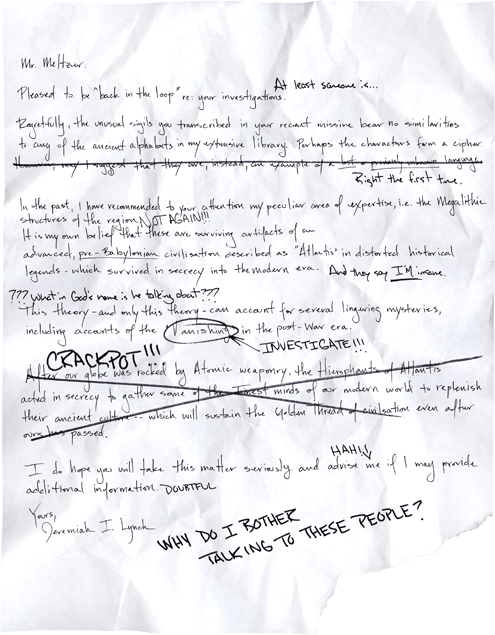 Mr. Meltzer.
At least someone is...
Pleased to be "back in the loop" re: your investigations.
Regretfully, the unusual sigils you transcribed in your recent missive bear no similarities
to any of the ancient alphabets in my extensive library. Perhaps the characters form a cipher
However, may I suggest that they are, instead, an example of a lost or previously unknown language.
Right the first time.
In the past, I have recommended to your attention my peculiar area of expertise, i.e. the Megalithic
structures of the region. NOT AGAIN!!!
It is my own belief that these are surviving artifacts of an
advanced, pre-Babylonian civilisation described as "Atlantis" in distorted historical
legends - which survived in secrecy into the modern era. And they say I'M insane.
??? What in God's name is he talking about???
This theory - and only this theory - can account for several lingering mysteries,
including accounts of the Vanishing in the post-War era.
INVESTIGATE!!!
CRACKPOT!!!
After our globe was rocked by Atomic weaponry, the Hierophants of Atlantis
acted in secrecy to gather some of the finest minds of our modern world to replenish
their ancient culture -- which will sustain the Golden Thread of civilisation even after
ours has passed.
HAH!
I do hope you will take this matter seriously and advise me if I may provide
additional information. DOUBTFUL
Yours,
Jeremiah I. Lynch
WHY DO I BOTHER
TALKING TO THESE PEOPLE?